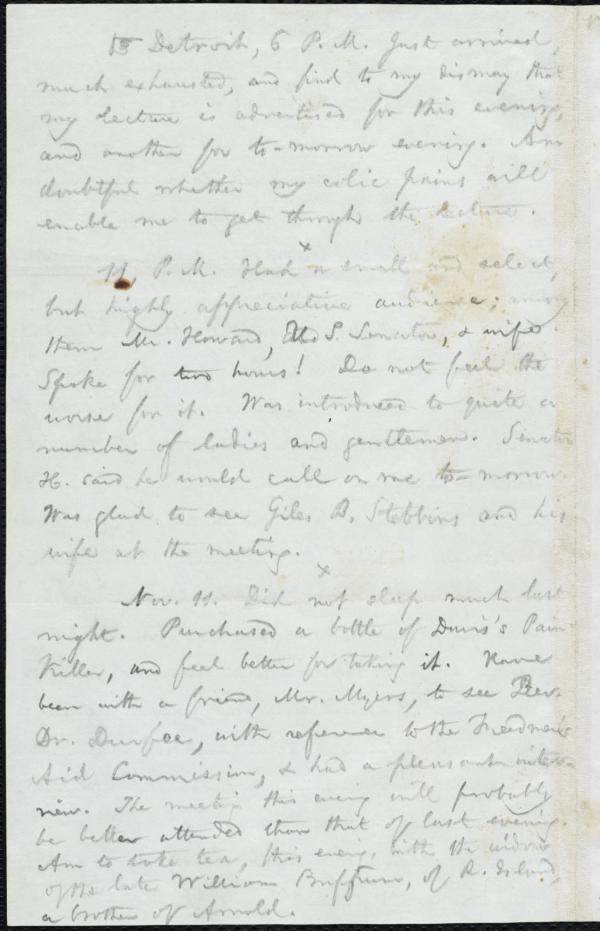 Detroit, 6 P. M. Just arrived,
much exhausted, and find to my dismay that
my lecture is advertised for this evening,
and another for to-morrow evening. Am
doubtful whether my colic pains will
enable me to get through the lecture.
x
11, P. M. Had a small and select,
but highly appreciative audience; among
them Mr. Howard, U. S. Senator, & wife.
Spoke for two hours! Do not feel the
worse for it. Was introduced to quite a
number of ladies and gentlemen. Senator
H. said he would call on me to-morrow.
Was glad to see Giles B. Stebbins and his
wife at the meeting.
x
Nov. 11. Did not sleep much last
night. Purchased a bottle of Davis's Pain
Killer, and feel better for taking it. Have
been with a friend, Mr. Myers, to see Rev.
Dr. Durfee, with reference to the Freedmen's
Aid Commission, & had a pleasant inter-
view. The meeting this evening will probably
be better attended than that of last evening.
Am to take tea, this evening, with the widow
of the late William Buffum, of R. Island,
a brother of Arnold.